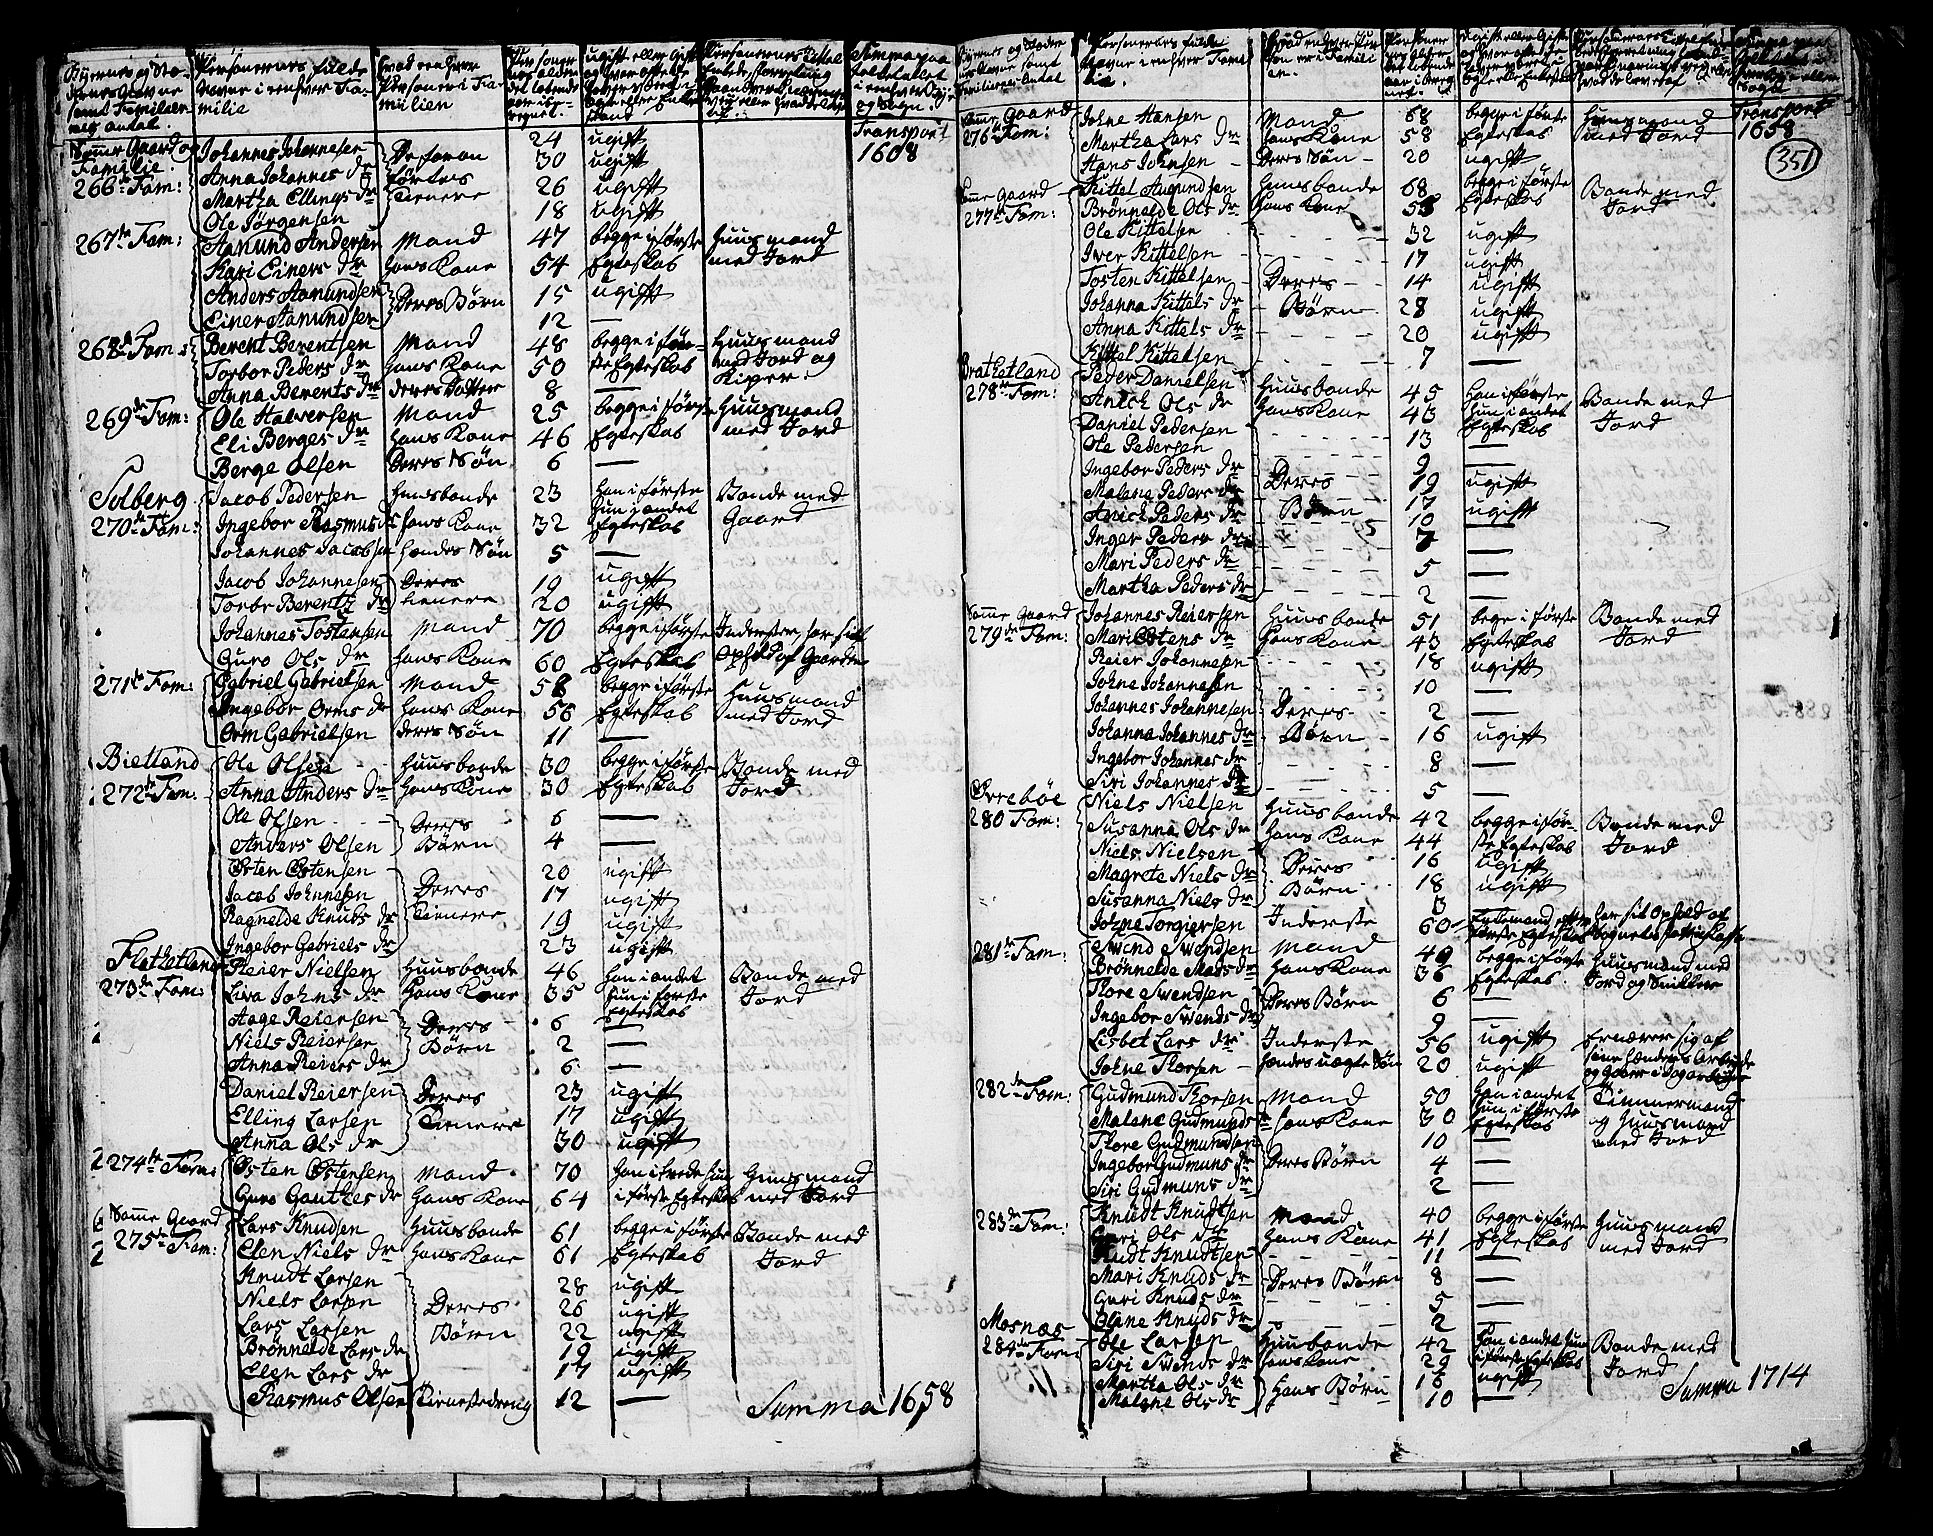 Transport
1608
Samme Gaard og
Familie
266te Fam: Johannes Johannesen 24 ugift
Anna Johannes Dr 30 ugift
Martha Ellings Dr tienere 26 ugift
Ole Jørgensen 18 ugift
267de Fam: Aamund Andersen Mand 47 begge i første Huusmand
Kari Einers Dr hans Kone 54 Egteskab med Jord
Anders Aamundsen Deres Børn 15 ugift
Einer Aamundsen 12 —
268de Fam: Berent Berentsen Mand 48 begge i før- Huusmand
Torbor Peders Dr hans Kone 50 ste Egteskab med Jord og
Anna Berents Dr deres Datter 8 —
269de Fam: Ole Halversen Mand 25 begge i første Huusmand
Eli Berges Dr hans Kone 46 Egteskab med Jord
Berge Olsen Deres Søn 6 —
Solberg Jacob Pedersen Huusbonde 23 han i første Bonde med
hun i andet
270de Fam: Ingebor Rasmus Dr hans Kone 32 Egteskab Gaard
Johannes Jacobsen hendes Søn 5 —
Jacob Johannesen Deres 19 ugift
Torbr Berents Dr tienere 20 ugift
Johannes Tostensen Mand 70 begge i første Inderster har sit
Guro Ols Dr hans Kone 60 Egteskab Ophold af Gaarden
271de Fam: Gabriel Gabrielsen Mand 58 begge i første Huusmand
Ingebor Orms Dr hans Kone 56 Egteskab med Jord
Orm Gabrielsen deres Søn 11 —
Bietland Ole Olsen Huusbonde 30 begge i første Bonde med
272de Fam: Anna Anders Dr hans Kone 30 Egteskab Jord
Ole Olsen Deres 6 —
Anders Olsen Børn 4 —
Østen Østensen 20 ugift
Jacob Johannesen Deres 17 ugift
Ragnelde Knuds Dr tienere 19 ugift
Ingebor Gabriels Dr 23 ugift
Flatketland Reier Nielsen Huusbonde 46 han i andet Bonde med
273de Fam: Liva Johns Dr hans Kone 35 hun i første Jord
Egteskab
Aage Reiersen Deres 6 —
Niels Reiersen Børn 2 —
Anna Reiers Dr 6 —
Daniel Reiersen Deres 23 ugift
Elling Larsen tienere 17 ugift
Anna Ols Dr 30 ugift
274de Fam: Østen Østensen Mand 70 han i tredie hun Huusmand
Guro Gautkes Dr hans Kone 64 i første Egteskab med Jord
Samme Gaard Lars Knudsen Huusbonde 61 begge i første Bonde med
275de Fam: Elen Niels Dr hans Kone 61 Egteskab Jord
Knudt Larsen 28 ugift
Niels Larsen Deres 26 ugift
Lars Larsen Børn 22 ugift
Brønnelde Lars Dr 19 ugift
Elen Lars Dr 17 ugift
Rasmus Olsen Tienestedreng 12 —
Summa 1658
Transport
1658
351
Samme Gaard Johne Hansen Mand 68 begge i første Huusmand
276de Fam: Martha Lars Dr hans Kone 58 Egteskab med Jord
Hans Johnsen Deres Søn 20 ugift
Samme Gaard Kittel Aamundsen Huusbonde 68 begge i første Bonde med
277de Fam: Brønnelde Ols Dr hans Kone 58 Egteskab Jord
Ole Kittelsen 32 ugift
Iver Kittelsen 17 ugift
Tosten Kittelsen Deres 14 ugift
Johanna Kittels Dr Børn 28 ugift
Anna Kittels Dr 20 ugift
Kittel Kittelsen 7 —
Bratketland Peder Danielsen Huusbonde 45 han i første Bonde med
278de Fam: Anich Ols Dr hans Kone 43 hun i andet Jord
Egteskab
Daniel Pedersen 13 —
Ole Pedersen 9 —
Ingebor Peders Dr Deres 19 ugift
Malene Peders Dr Børn 17 ugift
Anich Peders Dr 10 —
Inger Peders Dr 7 —
Mari Peders Dr 5 —
Martha Peders Dr 2 —
Samme Gaard Johannes Reiersen Huusbonde 51 bege i første Bonde med
279de Fam: Mari Østens Dr hans Kone 43 Egteskab Jord
Reier Johannesen 18 ugift
Johne Johannesen 10 —
Johannes Johannesen Deres 2 —
Johanna Johannes Dr Børn 16 ugift
Ingebor Johannes Dr 8 —
Siri Johannes Dr 5 —
Ørrebøe Niels Nielsen Huusbonde 42 begge i før- Bonde med
280 Fam: Susanna Ols Dr hans Kone 44 ste Egteskab Jord
Niels Nielsen Deres 16 ugift
Magrete Niels Dr Børn 18 ugift
Susanna Niels Dr 3
Johne Torgiersen Inderste 60 Enkemand efter har sit Ophold af
første Egteskab
281de Fam: Swend Swendsen Mand 49 begge i første Huusmand med
Brønnelde Mads Dr hans Kone 36 Egteskab Jord og Snikker
Tore Swendsen Deres Børn 6 —
Ingebor Swends Dr 9 —
Lisbet Lars Dr Inderste 56 ugift Ernærer sig af
Johne Thorsen hendes uægte Søn 20 ugift sine hænders Arbeide
282de Fam: Gudmund Thorsen Mand 50 han i andet Timmermand
Malene Gudmunds Dr hans Kone 30 hun i første og Huusmand
Egteskab
Thore Gudmundsen 10 — med Jord
Ingebor Gudmuns Dr Deres Børn 4 —
Siri Gudmuns Dr 2 —
283de Fam: Knudt Knudtsen Mand 40 begge i første Huusmand
Guri Ols Dr hans Kone 41 Egteskab med Jord
Knudt Knudtsen 11 —
Mari Knuds Dr Deres Børn 8 —
Guri Knuds Dr 5 —
Olane Knuds Dr 2 —
Mosnæs Ole Larsen Huusbonde 42 han i andet hun Bonde med
284de Fam: Siri Swends Dr hans Kone 29 i første Egteskab Jord
Martha Ols Dr hans Børn 16 ugift
Malene Ols Dr 10 —
Summa 1714